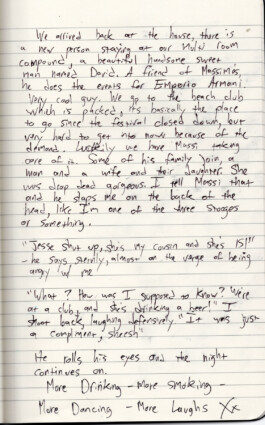 We arrived back at the house, there is
a new person staying at our multi room
compound, a beautiful handsome sweet
man named David. A friend of Massimo's,
he does the events for Emporio Armani.
Very cool guy. We go to the beach club
which is packed, its basically the place
to go since the festival closed down, but
very hard to get into now because of the
demand. Luckily we have Massi taking
care of is. Some of his family join, a
man and a wife and their daughter. She
was drop dead gorgeous. I tell Massi that
and he slaps me on the back of the
head, like I'm one of the three stooges
or something.
"Jesse shut up, shes my cousin and she's 15!"
- he says sternly, almost on the verge of being
angry w/ me
"What? How was I supposed to know? We're
at a club, and she's drinking a beer!" I
shout back, laughing defensively "It was just
a compliment, sheesh"
He rolls his eyes and the night
continues on.
More Drinking - More smoking -
More Dancing - More Laughs Xx